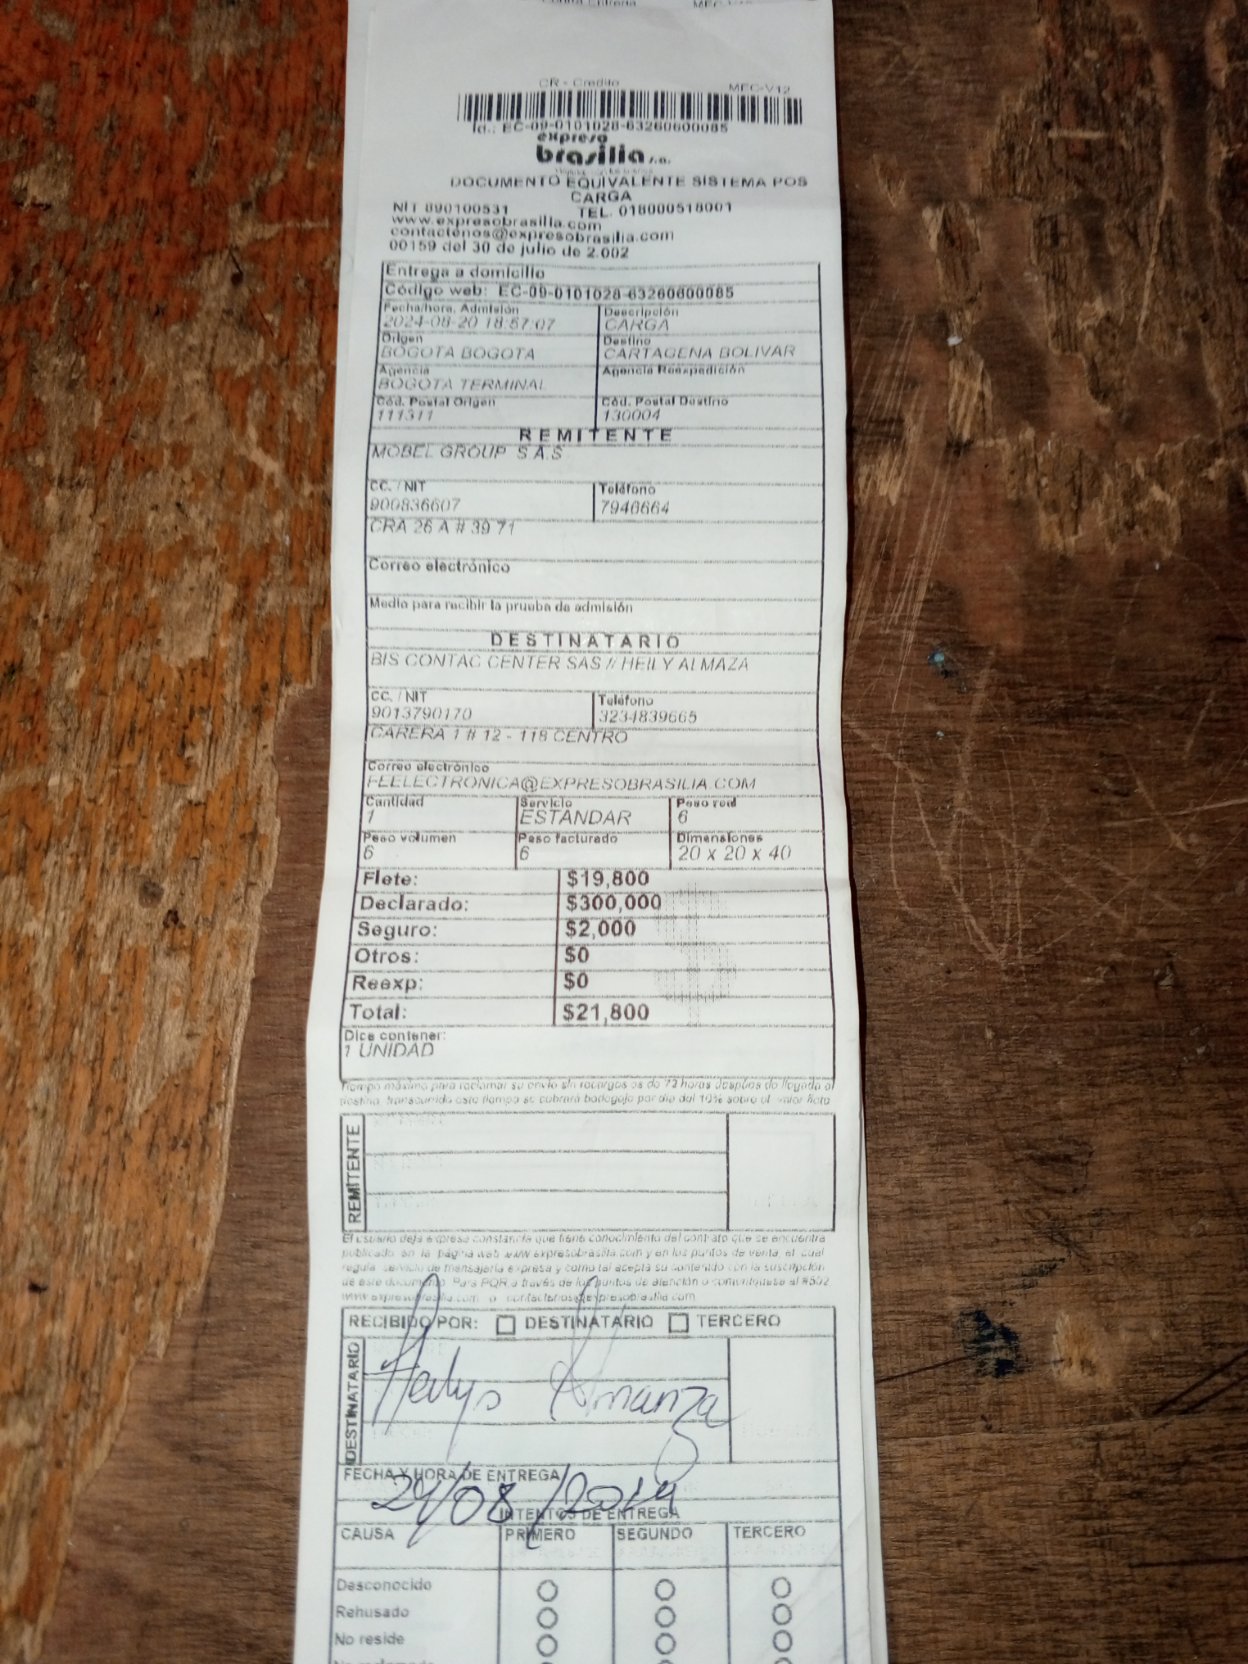 CR - Credito MEC-V12
Id.: EC-09-0101028-63260600085
expreso
brasilia s.a.
DOCUMENTO EQUIVALENTE SISTEMA POS
CARGA
NIT 890100531 TEL. 018000518001
www.expresobrasilia.com
contactenos@expresobrasilia.com
00159 del 30 de julio de 2.002
Entrega a domicilio
Código web: EC-09-0101028-63260600085
Fecha/hora. Admisión Descripción
2024-08-20 18:57:07 CARGA
Origen Destino
BOGOTA BOGOTA CARTAGENA BOLIVAR
Agencia Agencia Reexpedición
BOGOTA TERMINAL
Cód. Postal Origen Cód. Postal Destino
111311 130004
REMITENTE
MOBEL GROUP S A S
CC. / NIT Teléfono
900836607 7946664
CRA 26 A # 39 71
Correo electrónico
Medio para recibir la prueba de admisión
DESTINATARIO
BIS CONTAC CENTER SAS // HEILY ALMAZA
CC. / NIT Teléfono
9013790170 3234839665
CARERA 1 # 12 - 118 CENTRO
Correo electrónico
FEELECTRONICA@EXPRESOBRASILIA.COM
Cantidad Servicio Peso real
1 ESTANDAR 6
Peso volumen Peso facturado Dimensiones
6 6 20 x 20 x 40
Flete: $19,800
Declarado: $300,000
Seguro: $2,000
Otros: $0
Reexp: $0
Total: $21,800
Dice contener:
1 UNIDAD
Tiempo máximo para reclamar su envío sin recargos es de 72 horas después de llegada al
destino, transcurrido este tiempo se cobrará bodegaje por día del 10% sobre el valor flete
REMITENTE
El usuario deja expresa constancia que tiene conocimiento del contrato que se encuentra
publicado en la página web www.expresobrasilia.com y en los puntos de venta, el cual
regula servicio de mensajería expresa y como tal acepta su contenido con la suscripción
de este documento. Para PQR a través de los puntos de atención o comuníquese al #502
www.expresobrasilia.com o contactenos@expresobrasilia.com
RECIBIDO POR: DESTINATARIO TERCERO
DESTINATARIO
Heilys Almanza
FECHA Y HORA DE ENTREGA
29/08/2024
INTENTOS DE ENTREGA
CAUSA PRIMERO SEGUNDO TERCERO
Desconocido
Rehusado
No reside